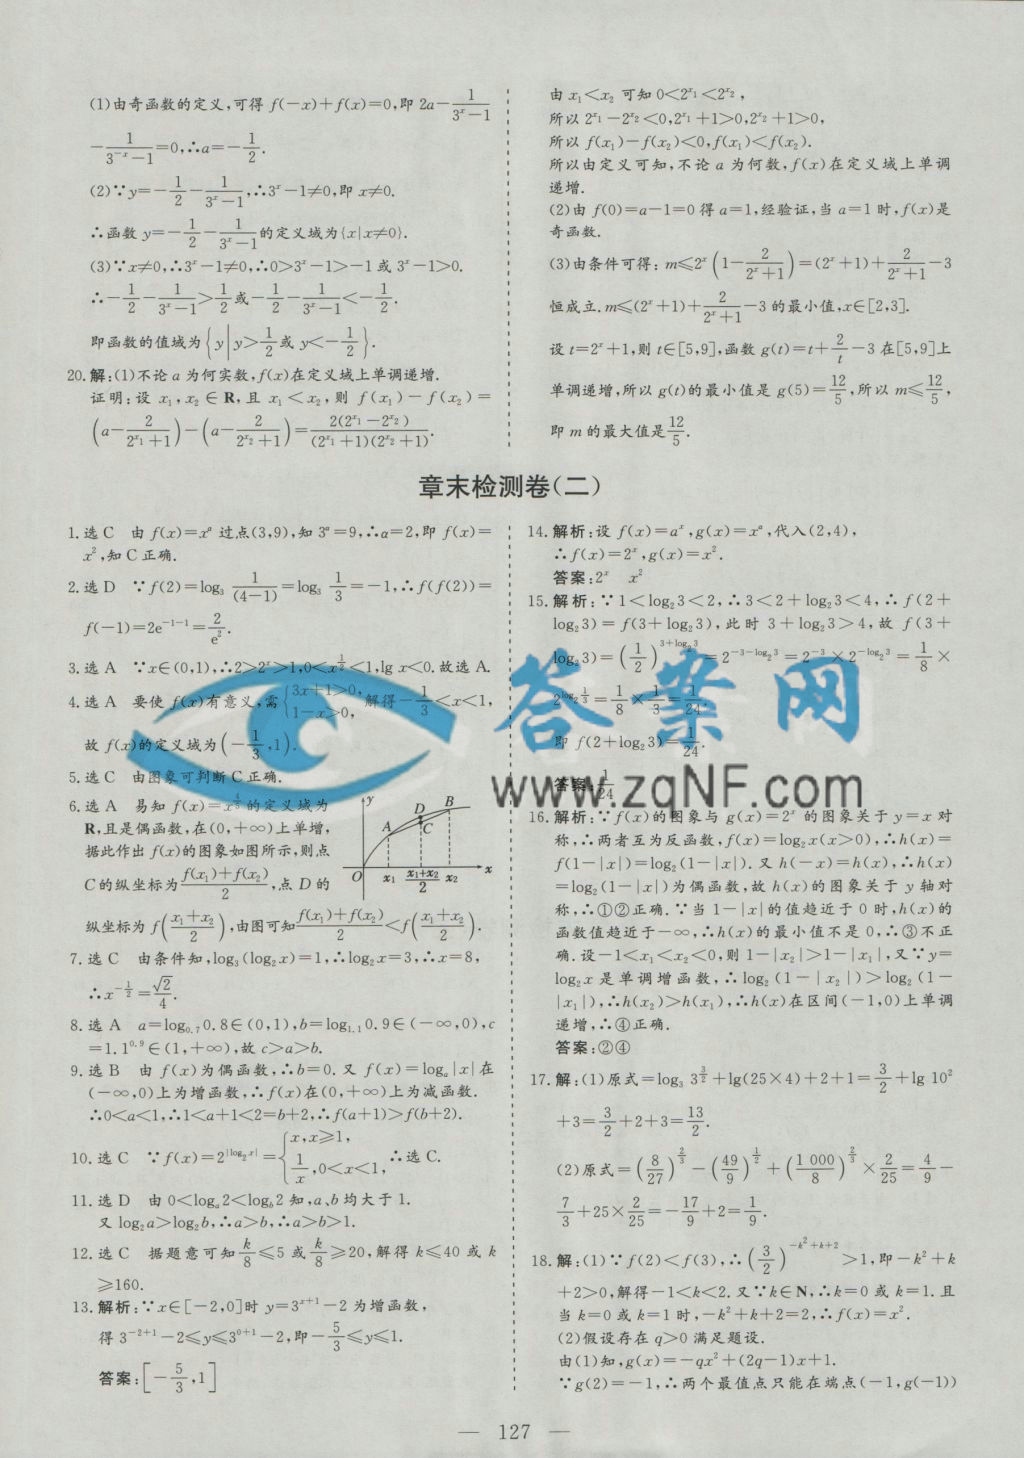 (1)由奇函数的定义,可得 f(-x)+f(x)=0,即 2a-1/(3^x-1)
-1/(3^{-x}-1)=0,∴a=-1/2.
(2)∵y=-1/2-1/(3^x-1),∴3^x-1≠0,即 x≠0.
∴函数 y=-1/2-1/(3^x-1)的定义域为{x|x≠0}.
(3)∵x≠0,∴3^x-1≠0,∴0>3^x-1>-1 或 3^x-1>0.
∴-1/2-1/(3^x-1)>1/2或-1/2-1/(3^x-1)<-1/2.
即函数的值域为{y|y>1/2或 y<-1/2}.
20.解:(1)不论 a 为何实数,f(x)在定义域上单调递增.
证明:设 x₁,x₂∈R,且 x₁<x₂,则 f(x₁)-f(x₂)=
(a-2/(2^{x₁}+1))-(a-2/(2^{x₂}+1))=2(2^{x₁}-2^{x₂})/((2^{x₁}+1)(2^{x₂}+1)).
由 x₁<x₂ 可知 0<2^{x₁}<2^{x₂},
所以 2^{x₁}-2^{x₂}<0,2^{x₁}+1>0,2^{x₂}+1>0,
所以 f(x₁)-f(x₂)<0,f(x₁)<f(x₂).
所以由定义可知,不论 a 为何数,f(x)在定义域上单调
递增.
(2)由 f(0)=a-1=0 得 a=1,经验证,当 a=1 时,f(x)是
奇函数.
(3)由条件可得:m≤2^x(1-2/(2^x+1))=(2^x+1)+2/(2^x+1)-3
恒成立.m≤(2^x+1)+2/(2^x+1)-3 的最小值,x∈[2,3].
设 t=2^x+1,则 t∈[5,9],函数 g(t)=t+2/t-3 在[5,9]上
单调递增,所以 g(t)的最小值是 g(5)=12/5,所以 m≤12/5,
即 m 的最大值是12/5.
章末检测卷(二)
1.选 C 由 f(x)=x^α 过点(3,9),知 3^α=9,∴α=2,即 f(x)=
x²,知 C 正确.
2.选 D ∵f(2)=log₃ 1/(4-1)=log₃ 1/3=-1,∴f(f(2))=
f(-1)=2e^{-1-1}=2/e².
3.选 A ∵x∈(0,1),∴2>2^x>1,0<x^{1/2}<1,lg x<0.故选 A.
4.选 A 要使 f(x)有意义,需{3x+1>0, 1-x>0, 解得-1/3<x<1,
故 f(x)的定义域为(-1/3,1).
5.选 C 由图象可判断 C 正确.
6.选 A 易知 f(x)=x^{4/5}的定义域为
R,且是偶函数,在(0,+∞)上单增,
据此作出 f(x)的图象如图所示,则点
C 的纵坐标为(f(x₁)+f(x₂))/2,点 D 的
纵坐标为 f((x₁+x₂)/2),由图可知(f(x₁)+f(x₂))/2<f((x₁+x₂)/2).
y
D B
A C
O x₁ (x₁+x₂)/2 x₂ x
7.选 C 由条件知,log₃(log₂x)=1,∴log₂x=3,∴x=8,
∴x^{-1/2}=√2/4.
8.选 A a=log₀.₇0.8∈(0,1),b=log₁.₁0.9∈(-∞,0),c
=1.1^{0.9}∈(1,+∞),故 c>a>b.
9.选 B 由 f(x)为偶函数,∴b=0.又 f(x)=logₐ|x|在
(-∞,0)上为增函数,∴f(x)在(0,+∞)上为减函数.
∴0<a<1,∴1<a+1<2=b+2,∴f(a+1)>f(b+2).
10.选 C ∵f(x)=2^{|log₂x|}={x,x≥1, 1/x,0<x<1, ∴选 C.
11.选 D 由 0<logₐ2<log_b2 知,a、b 均大于 1.
又 log₂a>log₂b,∴a>b,∴a>b>1.
12.选 C 据题意可知k/8≤5 或k/8≥20,解得 k≤40 或 k
≥160.
13.解析:∵x∈[-2,0]时 y=3^{x+1}-2 为增函数,
得 3^{-2+1}-2≤y≤3^{0+1}-2,即-5/3≤y≤1.
答案:[-5/3,1]
14.解析:设 f(x)=a^x,g(x)=x^α,代入(2,4),
∴f(x)=2^x,g(x)=x².
答案:2^x x²
15.解析:∵1<log₂3<2,∴3<2+log₂3<4,∴f(2+
log₂3)=f(3+log₂3),此时 3+log₂3>4,故 f(3+
log₂3)=(1/2)^{3+log₂3}=2^{-3-log₂3}=2^{-3}×2^{-log₂3}=1/8×
2^{log₂ 1/3}=1/8×1/3=1/24.
即 f(2+log₂3)=1/24.
答案:1/24
16.解析:∵f(x)的图象与 g(x)=2^x 的图象关于 y=x 对
称,∴两者互为反函数,f(x)=log₂x(x>0),∴h(x)=
f(1-|x|)=log₂(1-|x|).又 h(-x)=h(x),∴h(x)
=log₂(1-|x|)为偶函数,故 h(x)的图象关于 y 轴对
称,∴①②正确.∵当 1-|x|的值趋近于 0 时,h(x)的
函数值趋近于-∞,∴h(x)的最小值不是 0,∴③不正
确.设-1<x₁<x₂<0,则 1-|x₂|>1-|x₁|,又∵y=
log₂x 是单调增函数,∴log₂(1-|x₂|)>log₂(1-
|x₁|),∴h(x₂)>h(x₁),∴h(x)在区间(-1,0)上单调
递增,∴④正确.
答案:②④
17.解:(1)原式=log₃ 3^{3/2}+lg(25×4)+2+1=3/2+lg 10²
+3=3/2+2+3=13/2.
(2)原式=(8/27)^{2/3}-(49/9)^{1/2}+(1 000/8)^{2/3}×2/25=4/9-
7/3+25×2/25=-17/9+2=1/9.
18.解:(1)∵f(2)<f(3),∴(3/2)^{-k²+k+2}>1,即-k²+k
+2>0,解得-1<k<2.又∵k∈N,∴k=0 或 k=1.且
当 k=0 或 k=1 时,-k²+k+2=2,∴f(x)=x².
(2)假设存在 q>0 满足题设.
由(1)知,g(x)=-qx²+(2q-1)x+1.
∵g(2)=-1,∴两个最值点只能在端点(-1,g(-1))
答案网
www.zqNF.com
— 127 —